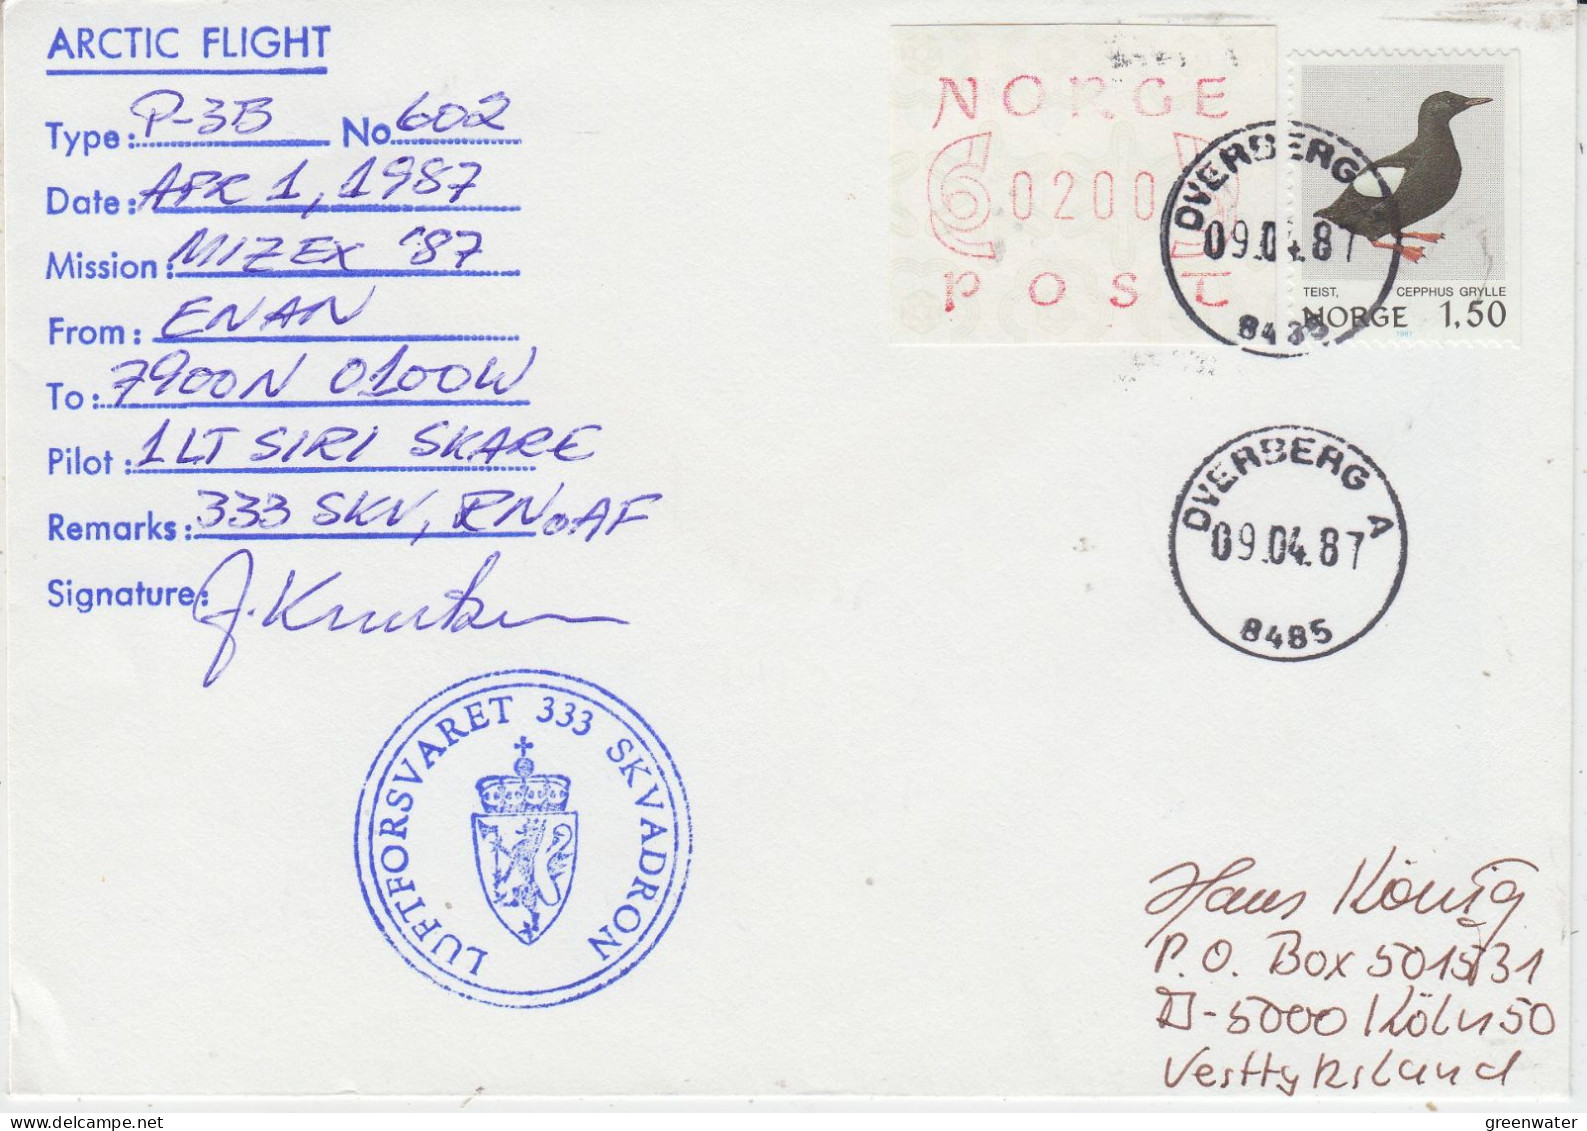 ARCTIC FLIGHT
Type: P-3B No. 602
Date: APR 1, 1987
Mission: MIZEX '87
From: ENAN
To: 7900N 0100W
Pilot: 1LT SIRI SKARE
Remarks: 333 SKV, RNoAF
Signature:
LUFTFORSVARET 333 SKVADRON
NORGE
0200
POST
TEIST, CEPPHUS GRYLLE
NORGE 1,50
DVERBERG
09.04.87
DVERBERG A
09.04.87
8485
Hans König
P.O. Box 501531
D-5000 Köln 50
Vesttyskland
greenwater